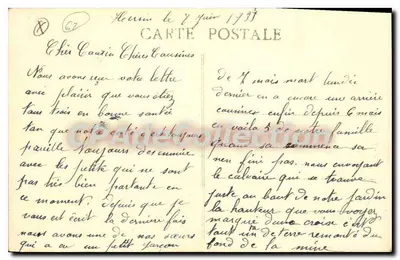 Hersin le 7 Juin 1931
62
CARTE POSTALE
Cher Cousin Chères Cousines
Nous avons reçu votre lettre
avec plaisir que vous étiez
tous trois en bonne santée
tan que nous
pareille toujours
avec les petite qui ne sont
pas très bien portante en
ce moment. depuis que je
vous est écrit la dernière fois
nous avons une de nos sœurs
qui a eu un petit garçon
de 7 mais mort lundie
dernier on a encore une arrière
cousine enfin depuis 6 mois
en voila 3 de notre famille
quand sa commence sa
nen fini pas. nous envoyont
le calvaire qui se trouve
juste au bout de notre jardin
la hauteur que vous voyez
marquée d'une croix c'est
un tas de terre remonté du
fond de la mine